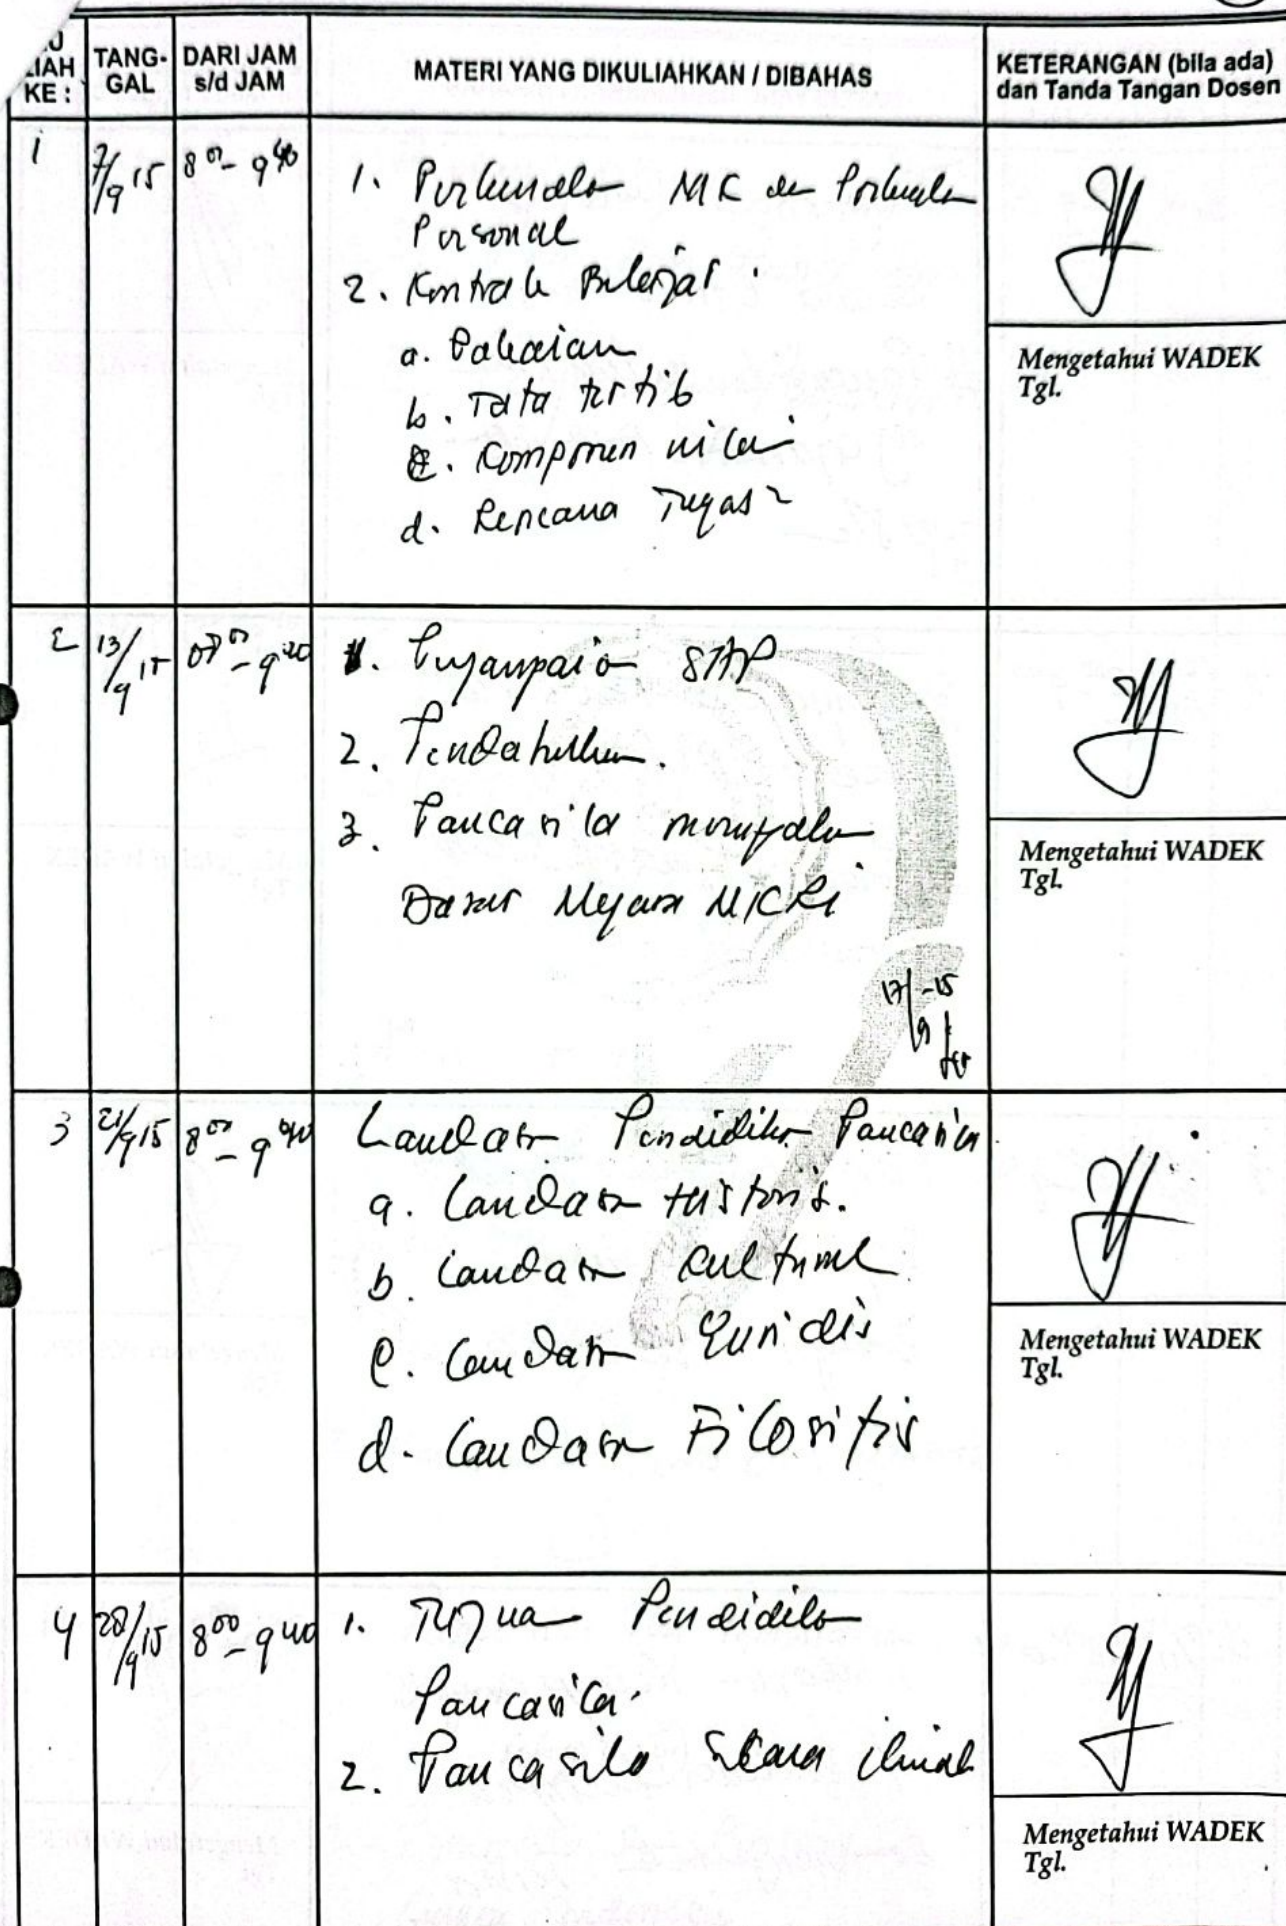 LIAH KE :
TANG-GAL
DARI JAM s/d JAM
MATERI YANG DIKULIAHKAN / DIBAHAS
KETERANGAN (bila ada) dan Tanda Tangan Dosen
1
7/9 15
8 00 - 9 40
1. Perkenalan MK dan Perkenalan
Personal
2. Kontrak Belajar :
a. Pakaian
b. Tata tertib
c. Komponen nilai
d. Rencana Tugas 2
Mengetahui WADEK
Tgl.
2
13/9 15
08 00 - 9 40
1. Penyampaian SAP
2. Pendahuluan.
3. Pancasila merupakan
Dasar Negara NKRI
17/9 -15
Mengetahui WADEK
Tgl.
3
21/9 15
8 00 - 9 40
Landasan Pendidikan Pancasila
a. Landasan Historis.
b. Landasan Cultural
c. Landasan Yuridis
d. Landasan Filosofis
Mengetahui WADEK
Tgl.
4
28/9 15
8 00 - 9 40
1. Tujuan Pendidikan
Pancasila.
2. Pancasila secara ilmiah
Mengetahui WADEK
Tgl.